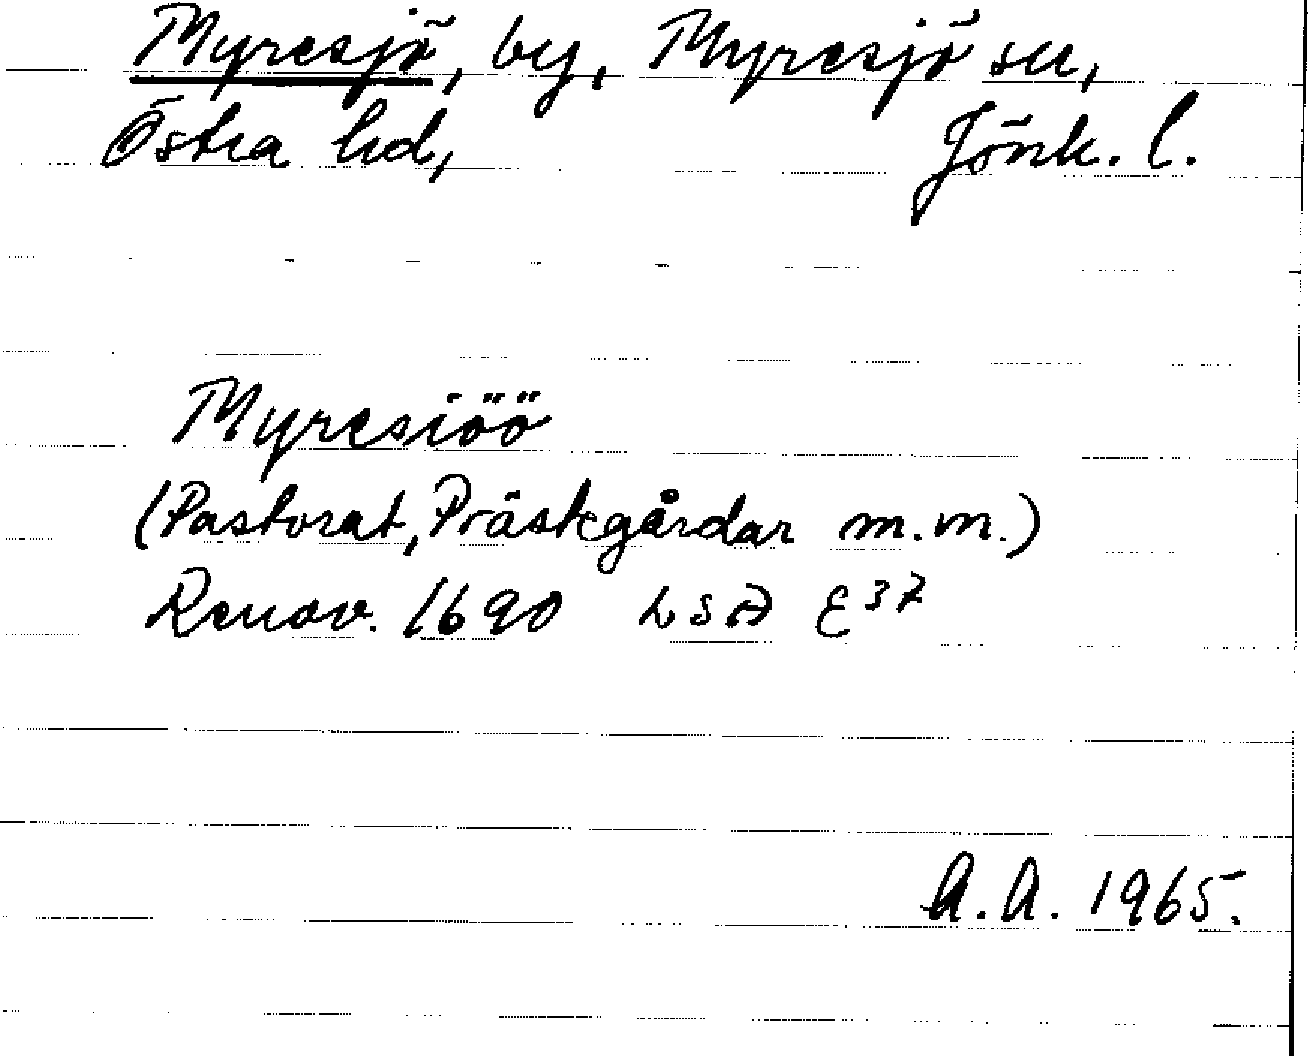 Myresjö, by, Myresjö sn,
Östra hd, Jönk. l.
Myresiöö
(Pastorat, Prästegårdar m.m.)
Renov. 1690 LSA E37
A.A. 1965.